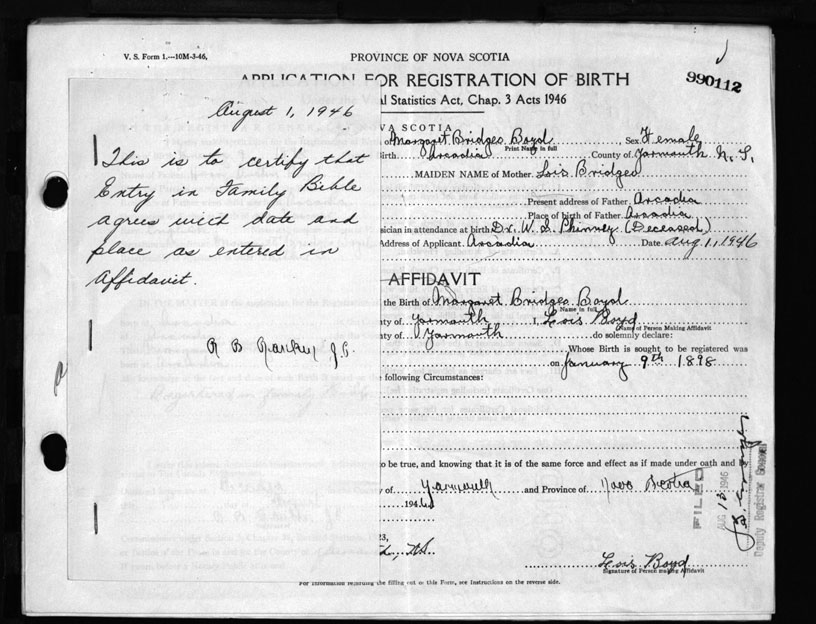 V. S. Form 1.—10M-3-46.
PROVINCE OF NOVA SCOTIA
APPLICATION FOR REGISTRATION OF BIRTH
990112
Statistics Act, Chap. 3 Acts 1946
August 1, 1946
This is to certify that
Entry in Family Bible
agrees with date and
place as entered in
Affidavit.
R B
NOVA SCOTIA
of Margaret Bridges Boyd Sex Female
Print Name in full
Birth Arcadia County of Yarmouth N. S.
MAIDEN NAME of Mother Lois Bridges
Present address of Father Arcadia
Place of birth of Father Arcadia
sician in attendance at birth Dr. W. S. Phinney (Deceased)
Address of Applicant Arcadia Date Aug 1, 1946
AFFIDAVIT
the Birth of Margaret Bridges Boyd
Name in full
ty of Yarmouth I, Lois Boyd
Name of Person Making Affidavit
ty of Yarmouth do solemnly declare:
Whose Birth is sought to be registered was
on January 9th 1898
following Circumstances:
to be true, and knowing that it is of the same force and effect as if made under oath and by
of Yarmouth and Province of Nova Scotia
1946
FILED
AUG 13 1946
Deputy Registrar General
Lois Boyd
Signature of Person making Affidavit
For information regarding the filling out of this Form, see Instructions on the reverse side.